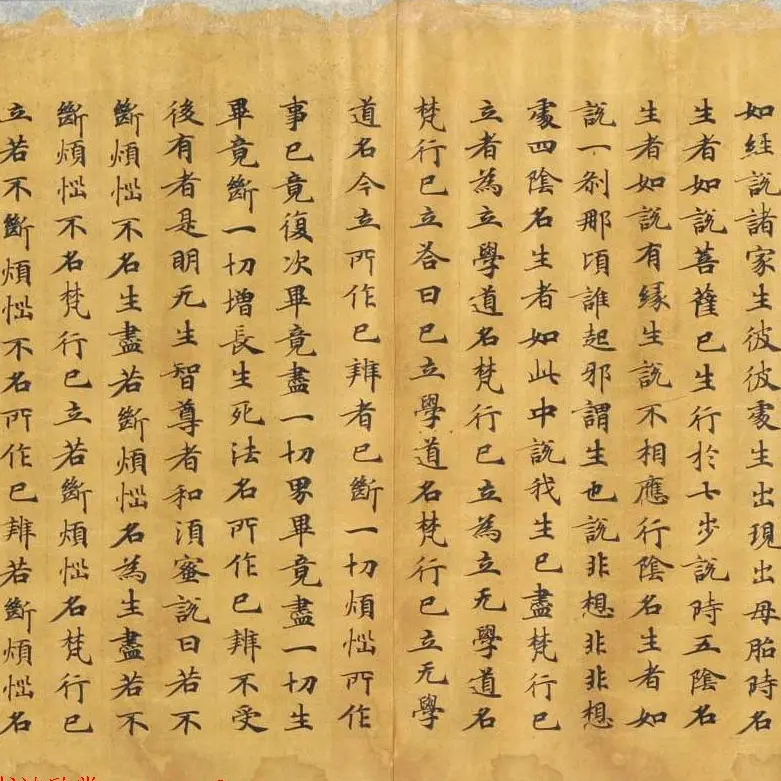 如經說諸家生彼彼處生出現出母胎時名
生者如說菩薩已生行於七步說時五陰名
生者如說有緣生說不相應行陰名生者如
說一剎那頃誰起邪謂生也說非想非非想
處四陰名生者如此中說我生已盡梵行已
立者為立學道名梵行已立為立无學道名
梵行已立答曰已立學道名梵行已立无學
道名今立所作已辨者已斷一切煩惱所作
事已竟復次畢竟盡一切界畢竟盡一切生
畢竟斷一切增長生死法名所作已辨不受
後有者是明无生智尊者和須蜜說曰若不
斷煩惱不名生盡若斷煩惱名為生盡若不
斷煩惱不名梵行已立若斷煩惱名梵行已
立若不斷煩惱不名所作已辨若斷煩惱名